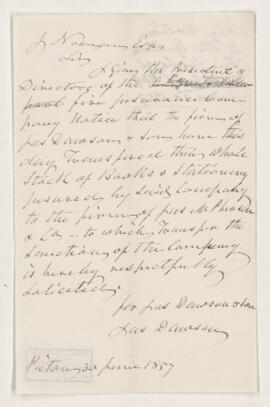 J Esqr
Sir
I Give the President &
Directors of the
fire Insurance Com-
pany Notice that the firm of
Jas Dawson & Son have this
day Transfered their whole
Stock of Books & Stationery
Insured by said Company
to the firm of Jas
& Co – to which Transfer the
of the Company
is hereby respectfully
Solicited
for Jas Dawson & Son
Jas Dawson
Pictou 30 June 1857